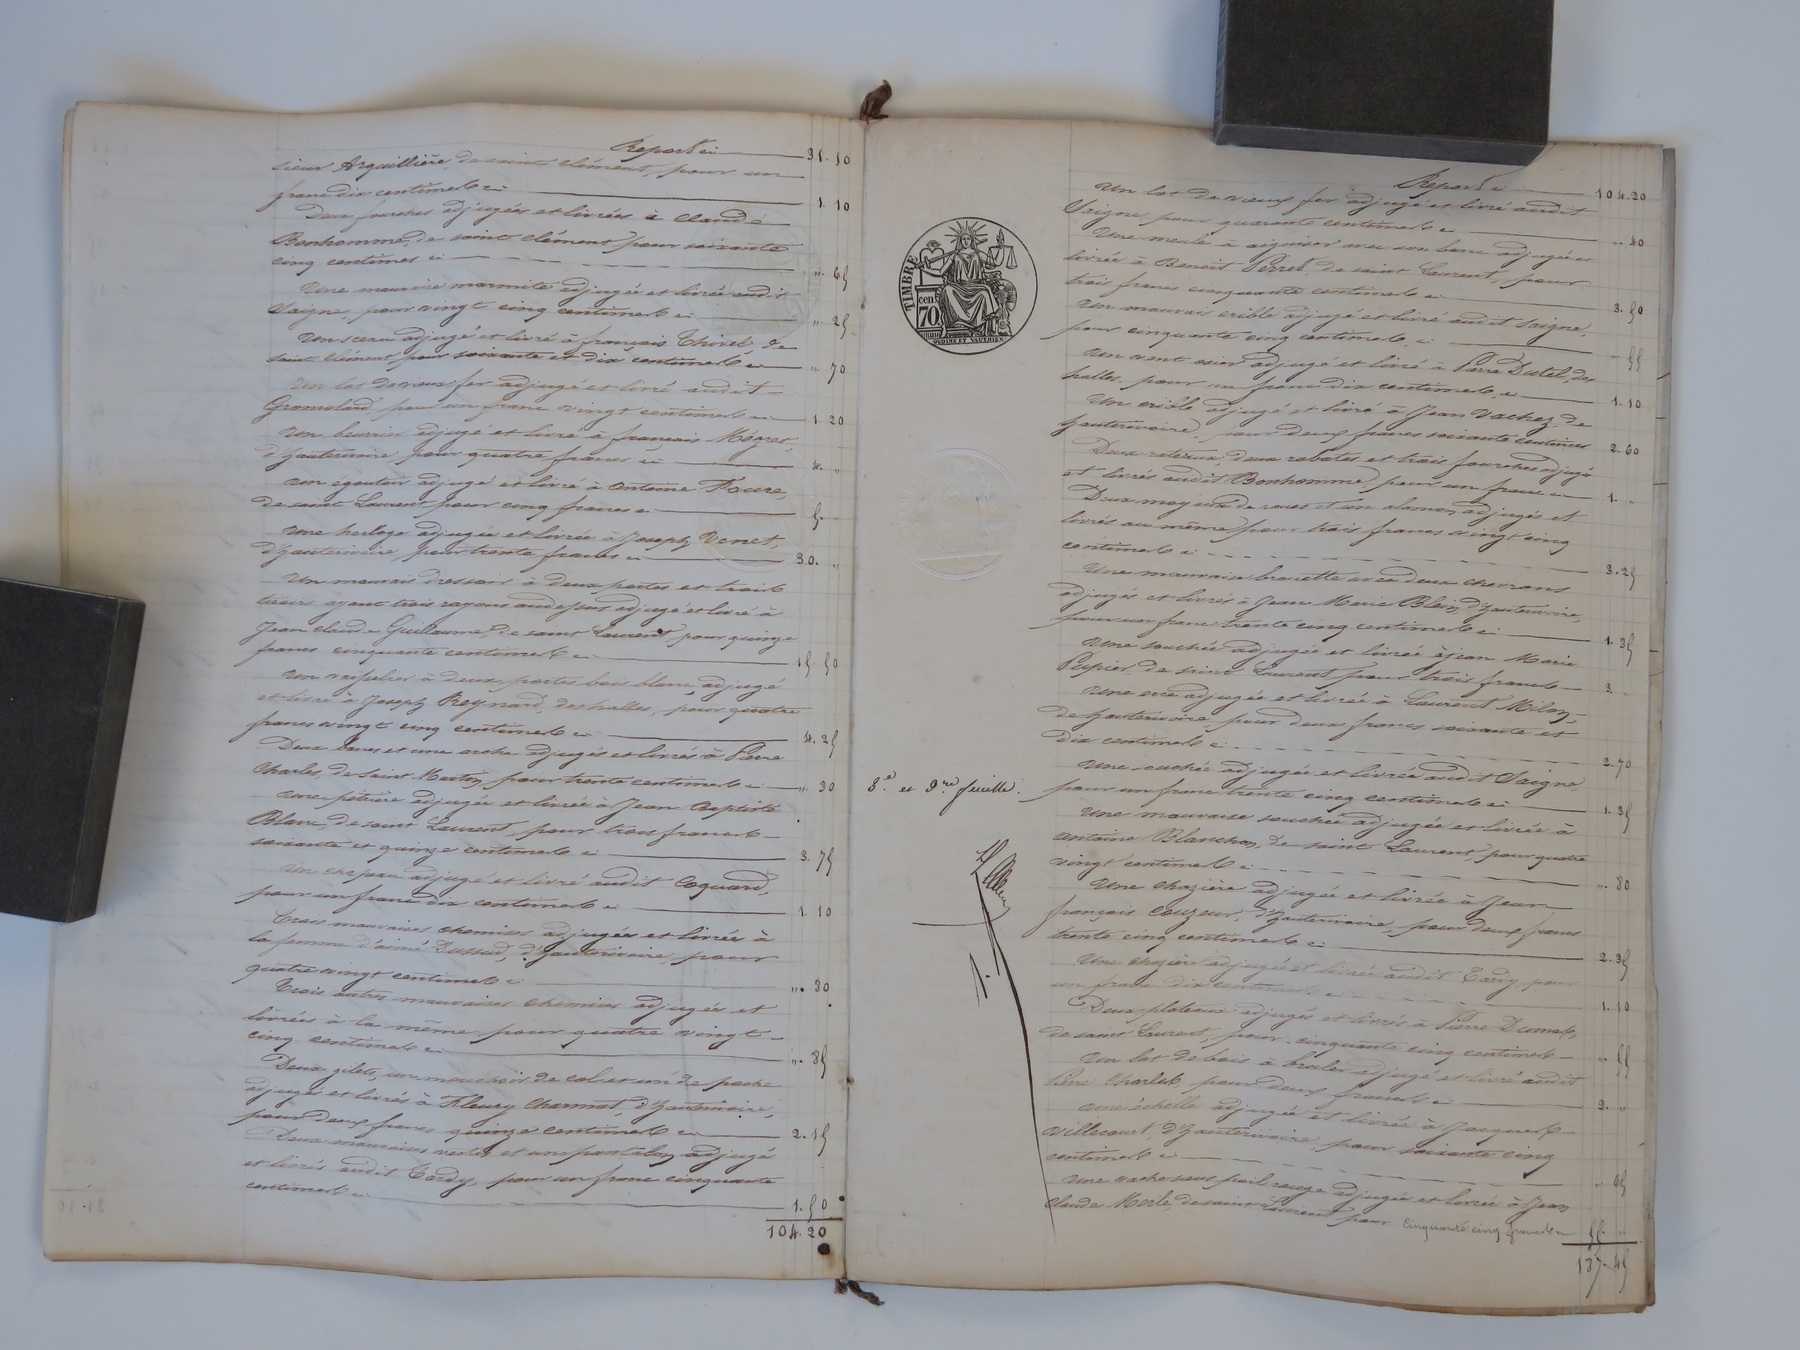 Report ci 31.10
sieur Arquillière, de saint Clément, pour un
franc dix centimes ci 1.10
Deux fourches adjugées et livrées à Claude
Bonhomme, de saint Clément pour soixante
cinq centimes ci ". 65
Une mauvaise marmite adjugée et livrée audit
Saigne, pour vingt cinq centimes ci ". 25
Un sceau adjugé et livré à françois Thivel, de
saint Clément, pour soixante et dix centimes ci ". 70
Un lot de vieux fer adjugé et livré audit
Gromolard, pour un franc vingt centimes ci 1.20
Un beurrier adjugé et livré à françois Mégret,
d'hauterivoire, pour quatre francs ci 4. "
un égoutoir adjugé et livré à antoine Foure,
de saint Laurent pour cinq francs ci 5. "
Une horloge adjugée et livrée à Joseph Venet,
d'hauterivoire, pour trente francs ci 30. "
Un mauvais dressoir à deux portes et trois
tiroirs ayant trois rayons au dessus adjugé et livré à
Jean Claude Guillaume, de saint Laurent, pour quinze
francs cinquante centimes ci 15.50
Un vaisselier à deux portes bois blanc, adjugé
et livré à Joseph Reynard, des halles, pour quatre
francs vingt cinq centimes ci 4.25
Deux bancs et une arche adjugés et livrés à Pierre
Charles, de Saint Martin, pour trente centimes ci ". 30
Une pétrière adjugée et livrée à Jean Baptiste
Blanc, de saint Laurent, pour trois francs
soixante et quinze centimes ci 3.75
Un chapeau adjugé et livré audit Coquard,
pour un franc dix centimes ci 1.10
Trois mauvaises chemises adjugées et livrées à
la femme d'aimé Dussud, d'hauterivoire, pour
quatre vingt centimes ci ". 80
Trois autres mauvaises chemises adjugées et
livrées à la même, pour quatre vingt
cinq centimes ci ". 85
Deux gilets, un mouchoir de col et un de poche
adjugés et livrés à Fleury Charmat, d'hauterivoire,
pour deux francs quinze centimes ci 2.15
Deux mauvaises vestes et un pantalon adjugé
et livrés audit Tardy, pour un franc cinquante
centimes ci 1.50
104.20
Report ci 104.20
Un lot de vieux fer adjugé et livré audit
Saigne, pour quarante centimes ci ". 40
Une meule à aiguiser avec son banc adjugée et
livrée à Benoit Perret, de saint Laurent, pour
trois francs cinquante centimes ci 3.50
Un mauvais crible adjugé et livré audit Saigne,
pour cinquante cinq centimes, ci ". 55
Un vent osier adjugé et livré à Pierre Dutel, des
halles, pour un franc dix centimes, ci 1.10
Un crible adjugé et livré à Jean Vachez, de
hauterivoire, pour deux francs soixante centimes 2.60
Deux rateaux, deux rabates et trois fourches adjugés
et livrés audit Bonhomme, pour un franc ci 1. "
Deux moyeux de roues et un alamon adjugés et
livrés au même, pour trois francs vingt cinq
centimes ci 3.25
Une mauvaise brouette avec deux chevrons
adjugés et livrés à Jean Marie Blein, d'hauterivoire,
pour un franc trente cinq centimes ci 1.35
Une souchée adjugée et livrée à jean Marie
Pupier, de saint Laurent, pour trois francs 3. "
Une adjugée et livrée à Laurent Milan,
de hauterivoire, pour deux francs soixante et
dix centimes ci 2.70
Une adjugée et livrée audit Saigne,
pour un franc trente cinq centimes ci 1.35
8.e et 9.re feuille.
Une mauvaise souchée adjugée et livrée à
antoine Blanchon, de saint Laurent, pour quatre
vingt centimes ci ". 80
Une chazière adjugée et livrée à Jean
françois Couzeur, d'hauterivoire, pour deux francs
trente cinq centimes ci 2.35
Une chazière adjugée et livrée audit Tardy, pour
un franc dix centimes ci 1.10
Deux plateaux adjugés et livrés à Pierre Dumas,
de saint Laurent, pour cinquante cinq centimes ". 55
Un lot de bois à brûler adjugé et livré audit
Pierre Charles, pour deux francs ci 2. "
une échelle adjugée et livrée à Jacques
Villecourt, d'hauterivoire, pour soixante cinq
centimes ci ". 65
Une vache sous poil rouge adjugée et livrée à Jean
Claude Merle, de saint Laurent, pour cinquante cinq francs ci 55. "
137.45
TIMBRE
cen 70
OUDINE ET VAUTHIER